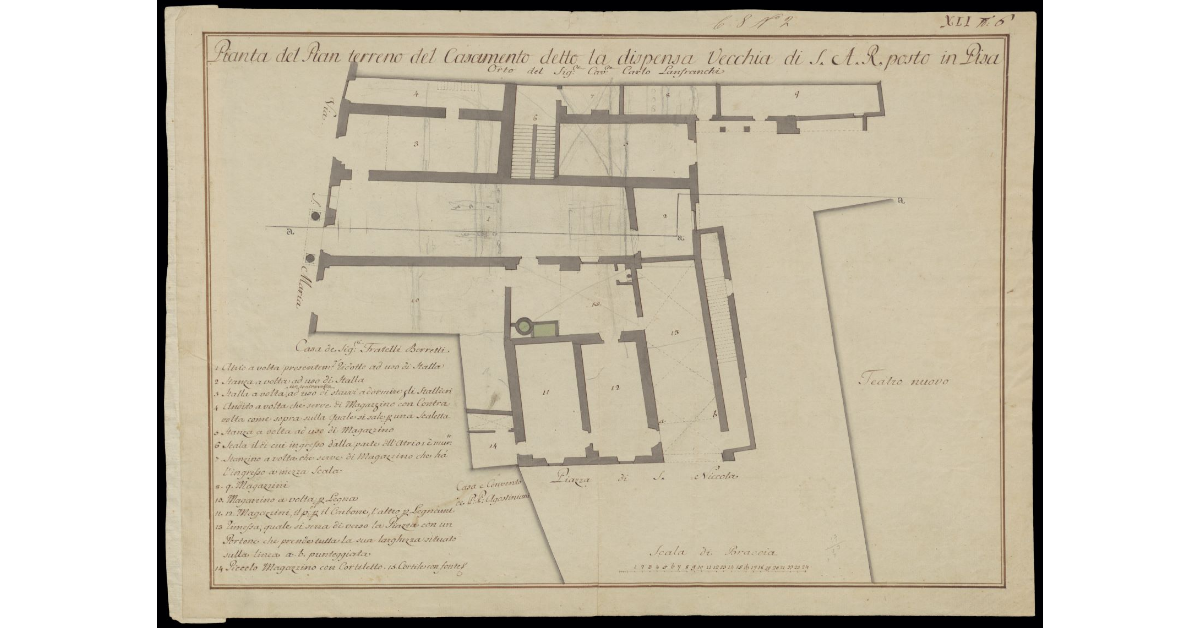 6 8 N° 2
XII n. 6
Pianta del Pian terreno del Casamento detto la dispensa Vecchia di S. A. R. posto in Pisa
Orto del Sig.r Cav.r Carlo Lanfranchi
Via
S.
Maria
4
7
8
9
3
6
5
1
2
a
a
a
10
15
13
11
12
14
a
b
Casa de Sig.ri Fratelli Berretti
Teatro nuovo
1 a volta ridotto ad uso di Stalla
2 Stanza a volta ad uso di Stalla
3 Stalla a volta, ad uso di a dormire gli Stallieri
4 Andito a volta che serve di Magazzino con Contra
volta come sopra sulla quale si sale p una Scaletta
5 Stanza a volta ad uso di Magazzino
6 Scala il di cui ingresso dalla parte dell'Atrio è
7 Stanzino a volta che serve di Magazzino che hà
l'ingresso a mezza Scala
8. 9. Magazzini
10. Magazzino a volta p Legna
11. 12 Magazzini, il p.o p il Carbone, l'altro p Legnami
13 Rimessa, quale si serra di verso la Piazza con un
Portone che prende tutta la sua larghezza situato
sulla linea a. b. punteggiata
14 Piccolo Magazzino con Cortiletto. 15 Cortile con fonte
Casa e Convento
de P. P. Agostiniani
Piazza di S. Niccola
Scala di Braccia